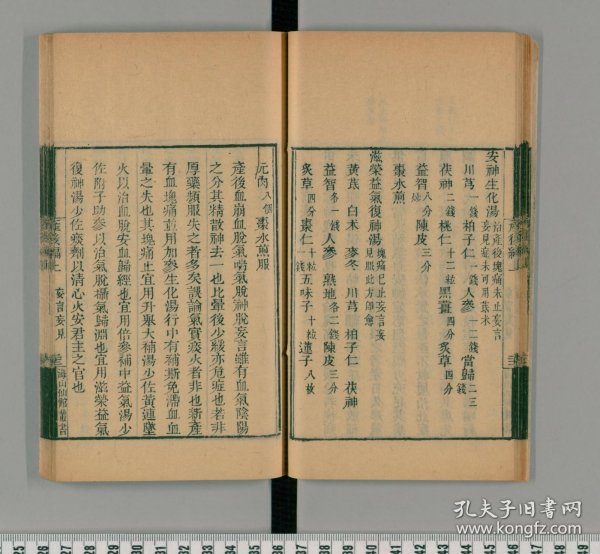 安神生化湯 治產後塊痛未止妄言
妄見症未可用茋朮
川芎 一錢 柏子仁 一錢 人參 一二錢 當歸 二三錢
茯神 二錢 桃仁 十二粒 黑薑 四分 炙草 四分
益智 八分 陳皮 三分
棗水煎
滋榮益氣復神湯 塊痛已止妄言妄
見服此方即愈
黃茋 白朮 麥冬 川芎 柏子仁 茯神
益智 各一錢 人參 熟地 各二錢 陳皮 三分
炙草 四分 棗仁 十粒 五味子 十粒 蓮子 八枚
元肉 八個 棗水煎服
產後血崩血脫氣喘氣脫神脫妄言雖有血氣陰陽
之分其精散神去一也比暈後少緩亦危症也若非
厚藥頻服失之者多矣誤論氣實痰火者非也新產
有血塊痛並用加參生化湯行中有補斯免滯血血
暈之失也其塊痛止宜用升舉大補湯少佐黃連墜
火以治血脫安血歸經也宜用倍參補中益氣湯少
佐附子助參以治氣脫攝氣歸淵也宜用滋榮益氣
復神湯少佐痰劑以清心火安君主之官也
產後編上 妄言妄見
海山仙館叢書
孔夫子旧书网
www.kongfz.com
25
26
27
28
29
30
31
32
33
34
35
36
37
38
39
40
41
42
43
44
45
46
47
48
49